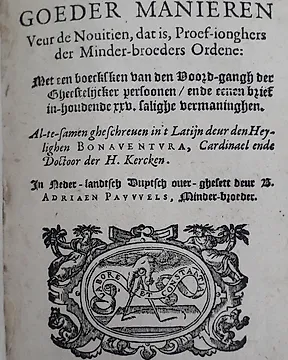 GOEDER MANIEREN
Veur de Nouitien, dat is, Proef-ionghers
der Minder-broeders Ordene:
Met een boecksken van den Voord-gangh der
Gheestelijcker persoonen / ende eenen brief
in-houdende xxv. salighe vermaninghen.
Al-te-samen gheschreuen in't Latijn deur den Hey-
lighen BONAVENTVRA, Cardinael ende
Doctoor der H. Kercken.
In Neder-landtsch Duytsch ouer-ghesett deur B.
ADRIAEN PAVVVELS, Minder-broeder.
LABORE ET CONSTANTIA